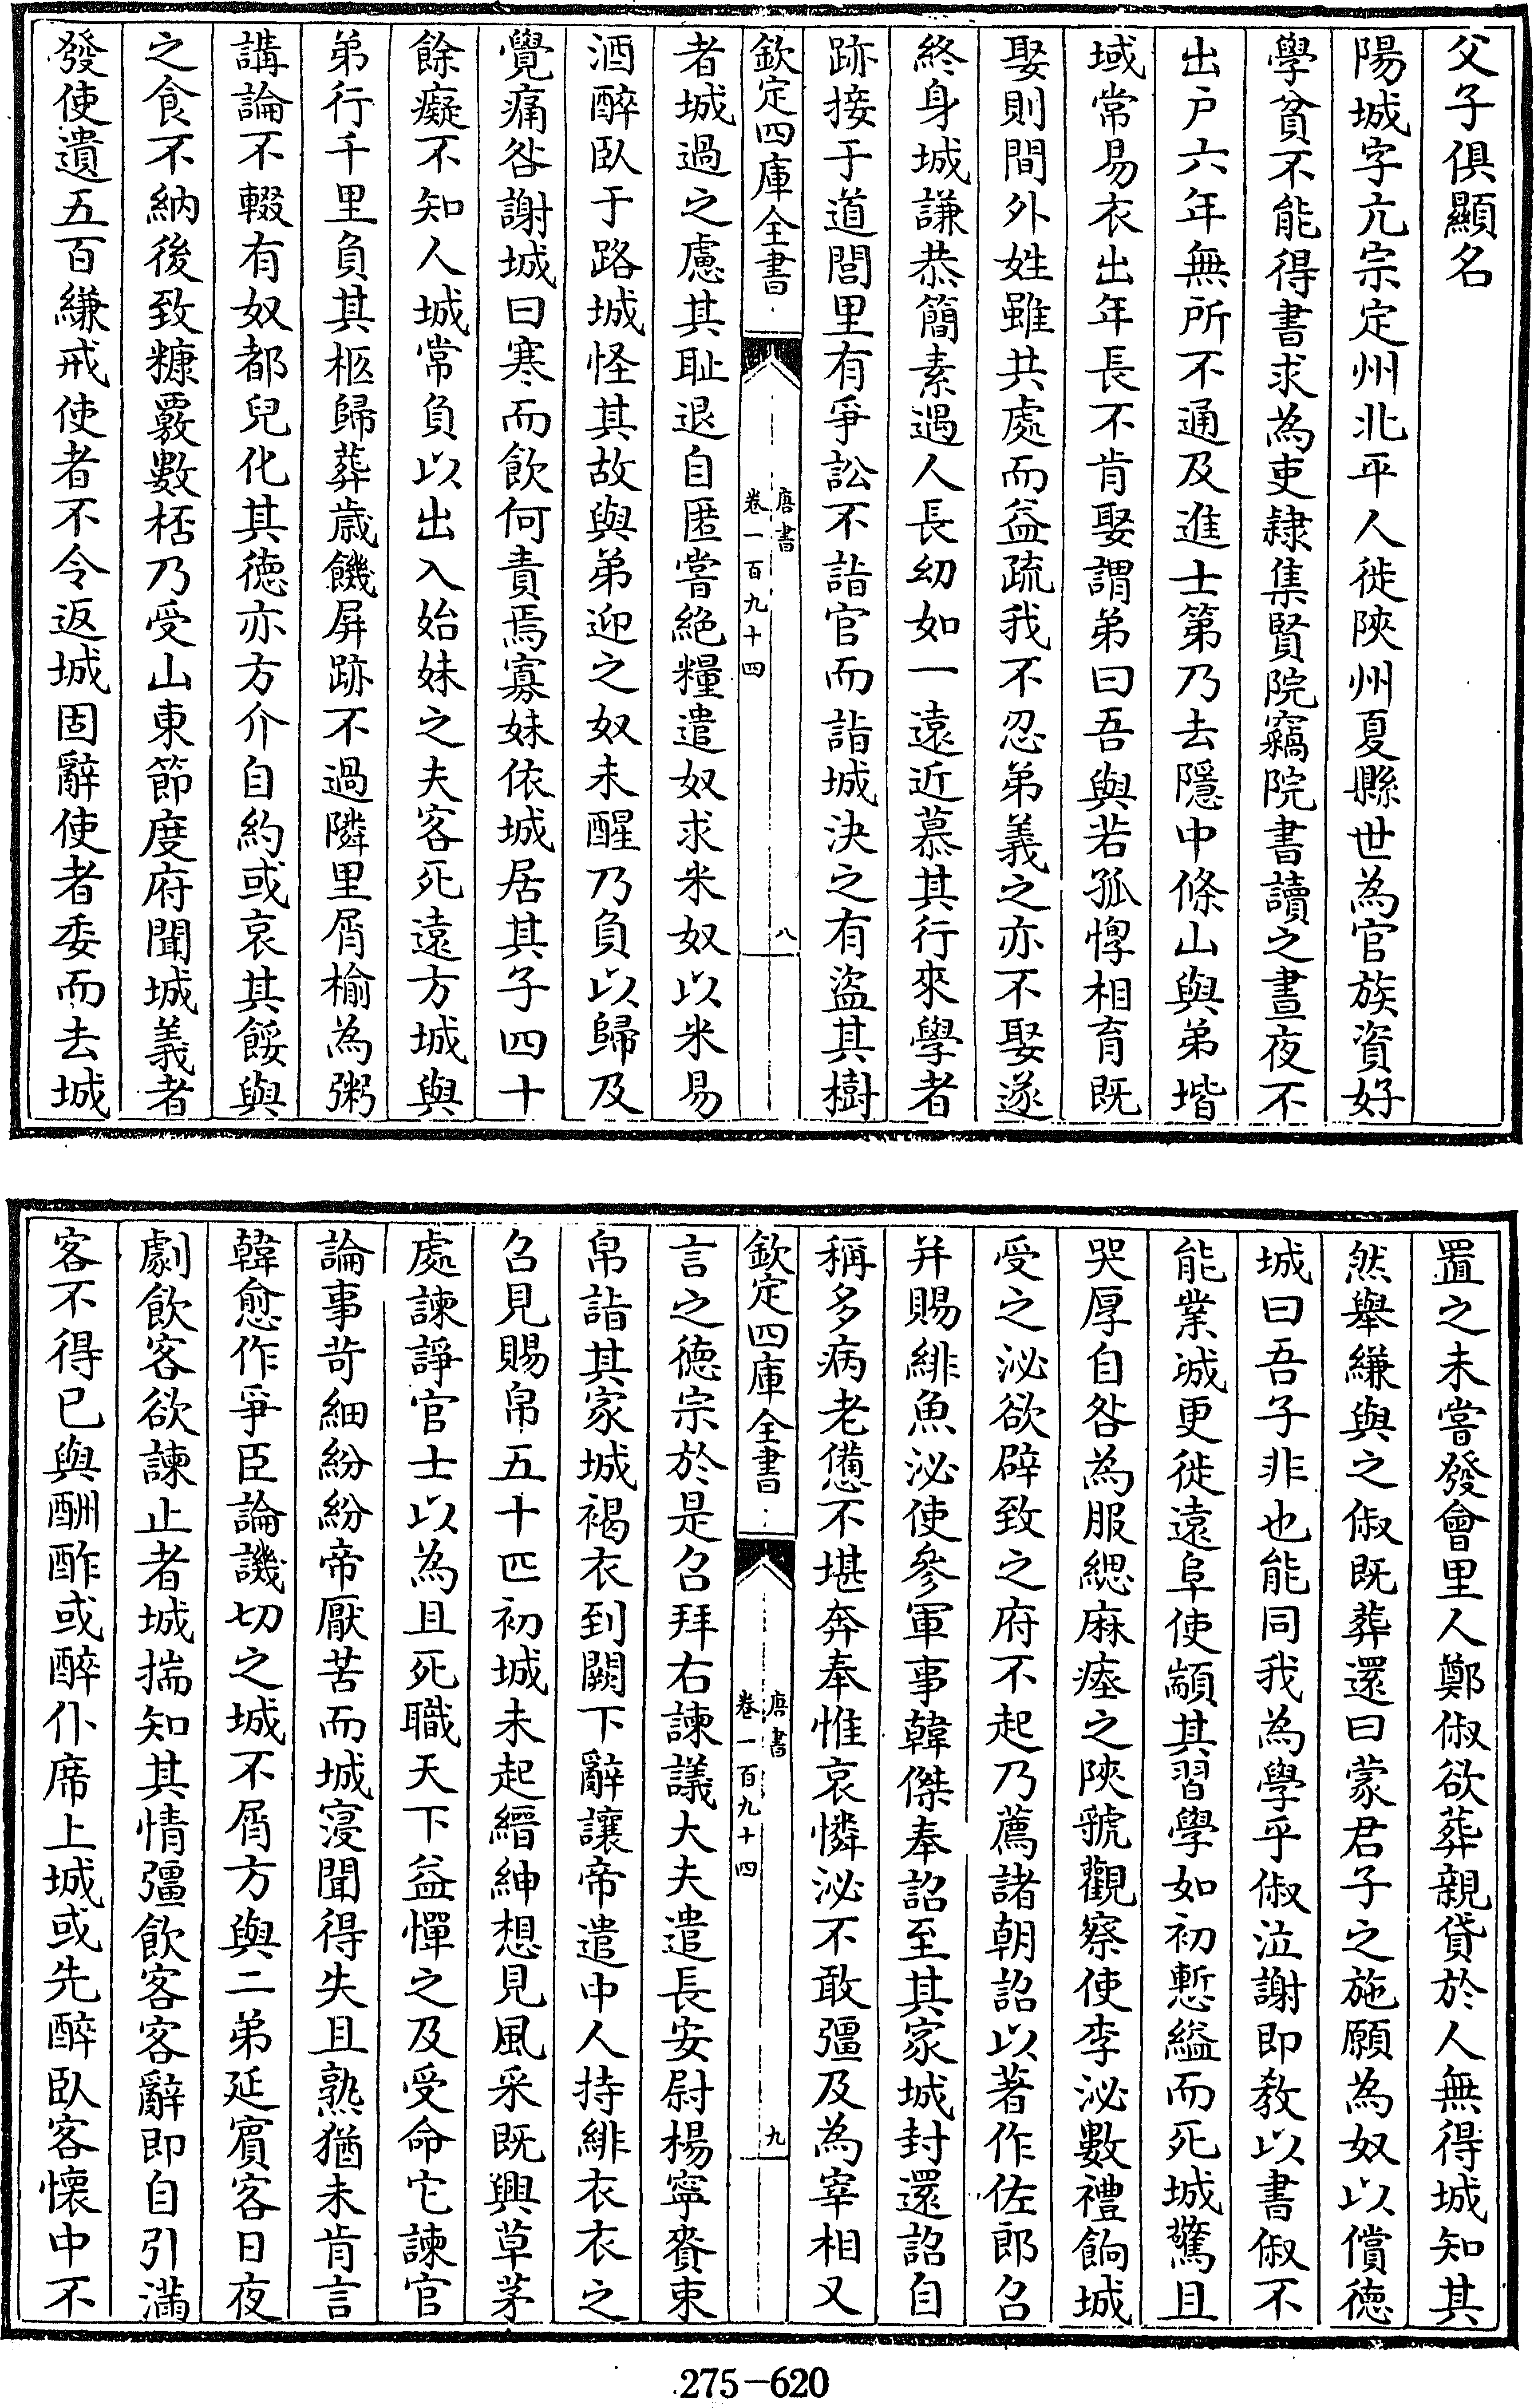 父子俱顯名
陽城字亢宗定州北平人徙陝州夏縣世為官族資好
學貧不能得書求為吏隸集賢院竊院書讀之晝夜不
出户六年無所不通及進士第乃去隱中條山與弟堦
域常易衣出年長不肯娶謂弟曰吾與若孤惸相育既
娶則間外姓雖共處而益疏我不忍弟義之亦不娶遂
終身城謙恭簡素遇人長幼如一遠近慕其行來學者
跡接于道閭里有爭訟不詣官而詣城決之有盜其樹
欽定四庫全書
唐書
卷一百九十四
八
者城過之慮其耻退自匿嘗絶糧遣奴求米奴以米易
酒醉臥于路城怪其故與弟迎之奴未醒乃負以歸及
覺痛咎謝城曰寒而飲何責焉寡妹依城居其子四十
餘癡不知人城常負以出入始妹之夫客死遠方城與
弟行千里負其柩歸葬歳饑屏跡不過隣里屑榆為粥
講論不輟有奴都兒化其德亦方介自約或哀其餒與
之食不納後致糠覈數桮乃受山東節度府聞城義者
發使遺五百縑戒使者不令返城固辭使者委而去城
置之未嘗發會里人鄭俶欲葬親貸於人無得城知其
然舉縑與之俶既葬還曰蒙君子之施願為奴以償德
城曰吾子非也能同我為學乎俶泣謝即教以書俶不
能業城更徙遠阜使顓其習學如初慙縊而死城驚且
哭厚自咎為服緦麻瘞之陝虢觀察使李泌數禮餉城
受之泌欲辟致之府不起乃薦諸朝詔以著作佐郎召
并賜緋魚泌使參軍事韓傑奉詔至其家城封還詔自
稱多病老憊不堪奔奉惟哀憐泌不敢彊及為宰相又
欽定四庫全書
唐書
卷一百九十四
九
言之德宗於是召拜右諫議大夫遣長安尉楊寧賫束
帛詣其家城褐衣到闕下辭讓帝遣中人持緋衣衣之
召見賜帛五十匹初城未起縉紳想見風采既興草茅
處諫諍官士以為且死職天下益憚之及受命它諫官
論事苛細紛紛帝厭苦而城寖聞得失且熟猶未肯言
韓愈作爭臣論譏切之城不屑方與二弟延賓客日夜
劇飲客欲諫止者城揣知其情彊飲客客辭即自引滿
客不得已與酬酢或醉仆席上城或先醉臥客懷中不
275-620